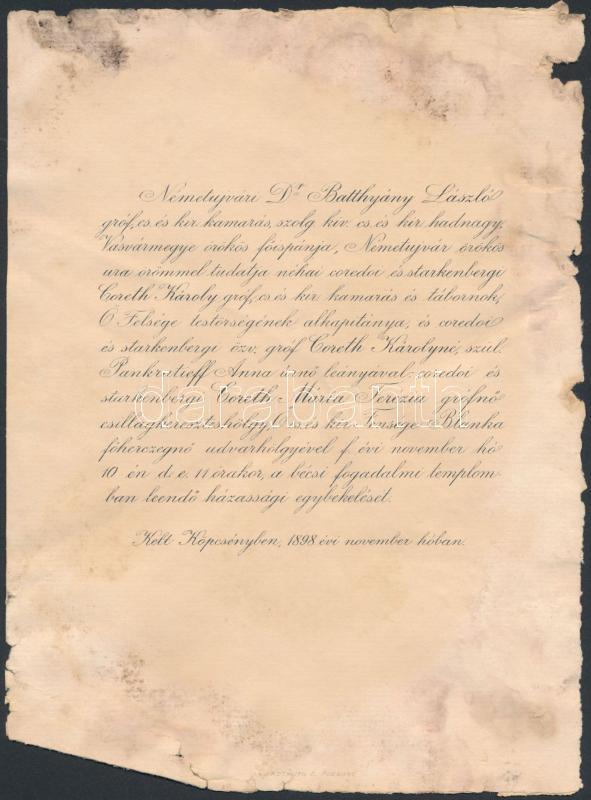 Németujvári Dr Batthyány László
gróf, cs. és kir. kamarás, szolg. kiv. cs. és kir. hadnagy,
Vasvármegye örökös főispánja, Németujvár örökös
ura örömmel tudatja néhai coredoi és starkenbergi
Coreth Károly gróf, cs. és kir. kamarás és tábornok,
Ő Felsége testőrségének alkapitánya, és coredoi
és starkenbergi özv. gróf Coreth Károlyné, szül.
Pankratieff Anna úrnő leányával coredoi és
starkenbergi Coreth Mária Terezia grófnő
csillagkeresztes hölgy, Ő cs. és kir. Fensége Blanka
főherczegnő udvarhölgyével f. évi november hó
10-én d. e. 11 órakor, a bécsi fogadalmi templom-
ban leendő házassági egybekelését.
Kelt Köpcsényben, 1898. évi november hóban.
darabanth